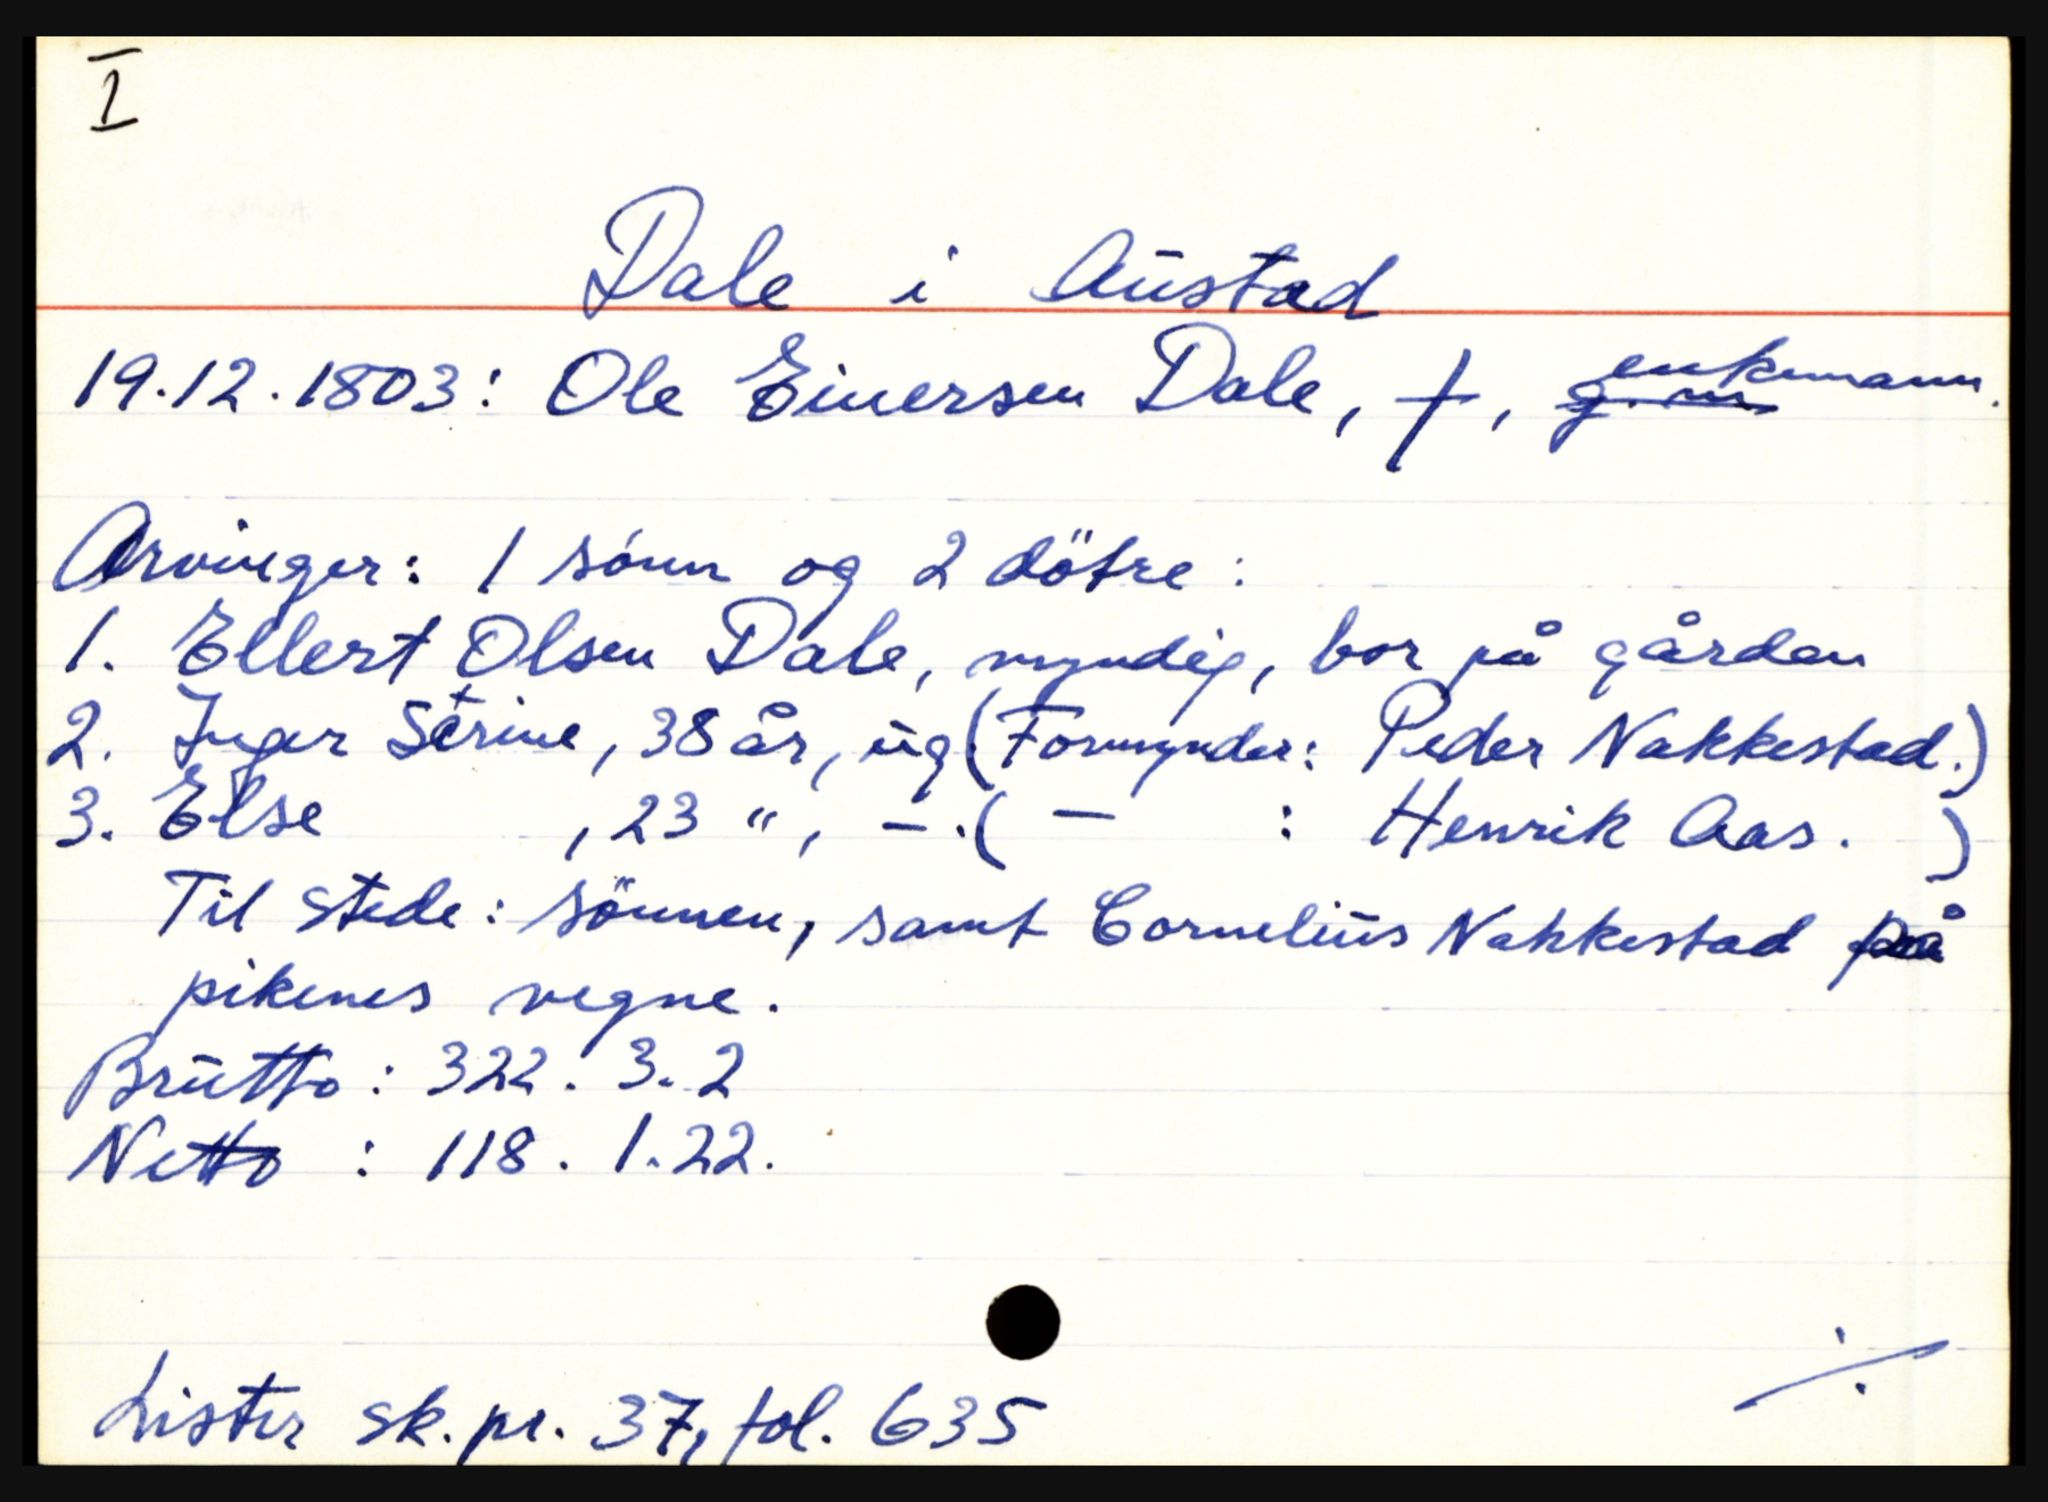 I
Dale i Austad
19.12.1803: Ole Einersen Dale, †, g. m. enkemann.
Arvinger: 1 sönn og 2 dötre:
1. Ellert Olsen Dale, myndig, bor på gården
2. Inger Strine, 38 år, ug (Formynder: Peder Nakkestad.)
3. Else , 23 ", – . ( – : Henrik Aas. )
Til stede: sönnen, samt Cornelius Nakkestad på
pikenes vegne.
Brutto: 322. 3. 2
Netto : 118. 1. 22.
Lister sk. pr. 37, fol. 635